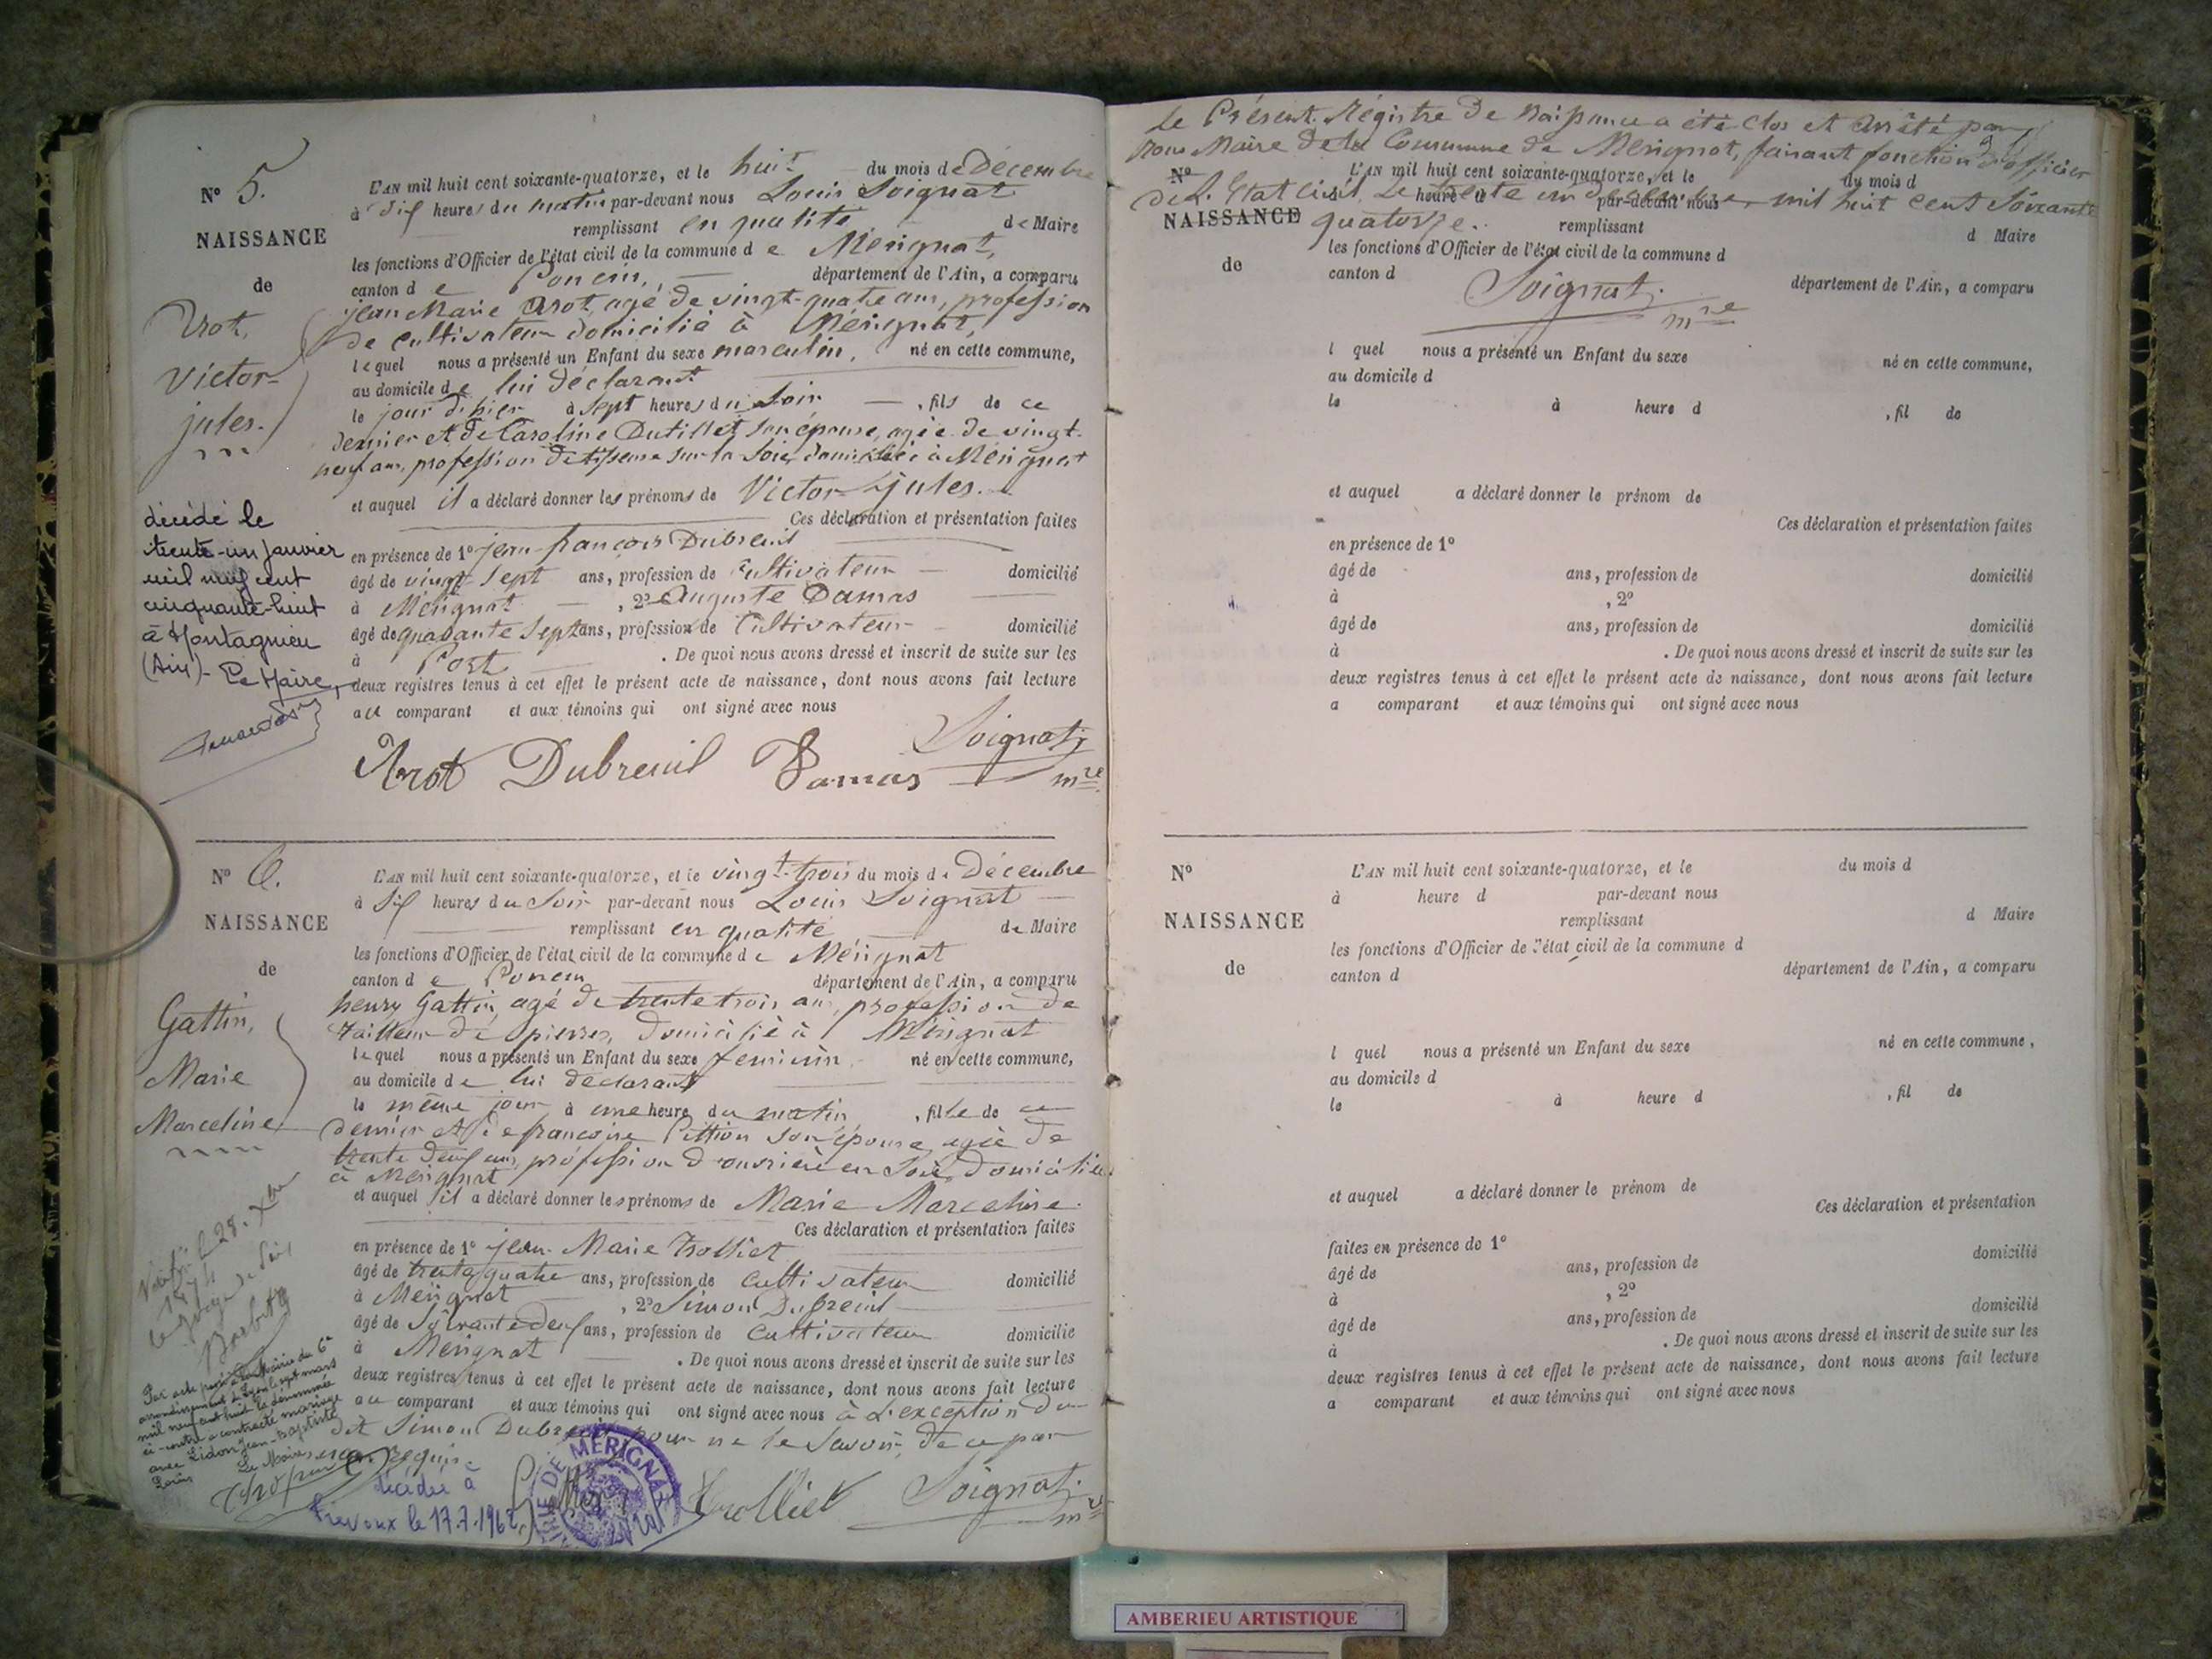 N° 5.
NAISSANCE
de
Arot,
Victor-
jules.
décédé le
trente-un Janvier
mil neuf cent
cinquante-huit
à Montagnieu
(Ain) - Le Maire,
L'AN mil huit cent soixante-quatorze, et le huit du mois de Décembre
à dix heures du matin par-devant nous Louis Soignat
remplissant en qualité de Maire
les fonctions d'Officier de l'état civil de la commune de Mérignat,
canton de Poncin, département de l'Ain, a comparu
jean Marie Arot, agé de vingt-quatre ans, profession
de cultivateur domicilié à Mérignat,
lequel nous a présenté un Enfant du sexe masculin, né en cette commune,
au domicile de lui déclarant
le jour d'hier à sept heures du soir, fils de ce
dernier et de Caroline Dutillet son épouse, agée de vingt-
neuf ans, profession de tisseuse sur la soie, domiciliée à Mérignat
et auquel il a déclaré donner les prénoms de Victor-jules.
Ces déclaration et présentation faites
en présence de 1° jean-françois Dubreuil
âgé de vingt-sept ans, profession de Cultivateur domicilié
à Mérignat, 2° Auguste Damas
âgé de quarante sept ans, profession de Cultivateur domicilié
à Post. De quoi nous avons dressé et inscrit de suite sur les
deux registres tenus à cet effet le présent acte de naissance, dont nous avons fait lecture
au comparant et aux témoins qui ont signé avec nous
Arot Dubreuil Damas Soignat mre
N° 6.
NAISSANCE
de
Gattin,
Marie
Marceline
Vérifié le 28. Xbre
1874
le juge de Paix
Par acte passé à la Mairie du 6e
arrondissement de Lyon le sept mars
mil neuf cent huit la dénommée
ci-contre a contracté mariage
avec Lidon Jean-Baptiste
Le Maire
L'AN mil huit cent soixante-quatorze, et le vingt-trois du mois de Décembre
à six heures du soir par-devant nous Louis Soignat
remplissant en qualité de Maire
les fonctions d'Officier de l'état civil de la commune de Mérignat
canton de Poncin département de l'Ain, a comparu
henry Gattin, agé de trente trois ans, profession de
tailleur de pierres, domicilié à Mérignat
lequel nous a présenté un Enfant du sexe feminin, né en cette commune,
au domicile de lui déclarant
le même jour à une heure du matin, fille de ce
dernier et de françoise Pittion son épouse, agée de
trente deux ans, profession d'ouvrière en Soie, domiciliée
à Mérignat
et auquel il a déclaré donner les prénoms de Marie Marceline
Ces déclaration et présentation faites
en présence de 1° jean-Marie Trolliet
âgé de trente quatre ans, profession de cultivateur domicilié
à Mérignat, 2° Simon Dubreuil
âgé de soixante deux ans, profession de cultivateur domicilié
à Mérignat. De quoi nous avons dressé et inscrit de suite sur les
deux registres tenus à cet effet le présent acte de naissance, dont nous avons fait lecture
au comparant et aux témoins qui ont signé avec nous à L'exception du
dit Simon Dubreuil pour ne le savoir, de ce par
nous requis.
Gattin Trolliet Soignat mre
MAIRIE DE MÉRIGNAT
décédée à
Trévoux le 17.7.1962
Le Présent Régistre de Naissance a été Clos et Arrêté par
Nous Maire de la Commune de Mérignat, faisant fonction d'officier
N° L'AN mil huit cent soixante-quatorze, et le du mois d
de L'Etat Civil, Le trente un décembre mil huit cent soixante
heure d par-devant nous
NAISSANCE quatorze. remplissant d Maire
les fonctions d'Officier de l'état civil de la commune d
de
canton d département de l'Ain, a comparu
Soignat
mre
l quel nous a présenté un Enfant du sexe né en cette commune,
au domicile d
le à heure d , fil de
et auquel a déclaré donner le prénom de
Ces déclaration et présentation faites
en présence de 1°
âgé de ans, profession de domicilié
à , 2°
âgé de ans, profession de domicilié
à . De quoi nous avons dressé et inscrit de suite sur les
deux registres tenus à cet effet le présent acte de naissance, dont nous avons fait lecture
a comparant et aux témoins qui ont signé avec nous
N° L'AN mil huit cent soixante-quatorze, et le du mois d
à heure d par-devant nous
NAISSANCE remplissant d Maire
les fonctions d'Officier de l'état civil de la commune d
de canton d département de l'Ain, a comparu
l quel nous a présenté un Enfant du sexe né en cette commune,
au domicile d
le à heure d , fil de
et auquel a déclaré donner le prénom de
Ces déclaration et présentation
faites en présence de 1° domicilié
âgé de ans, profession de
à , 2° domicilié
âgé de ans, profession de
à . De quoi nous avons dressé et inscrit de suite sur les
deux registres tenus à cet effet le présent acte de naissance, dont nous avons fait lecture
a comparant et aux témoins qui ont signé avec nous
AMBERIEU ARTISTIQUE